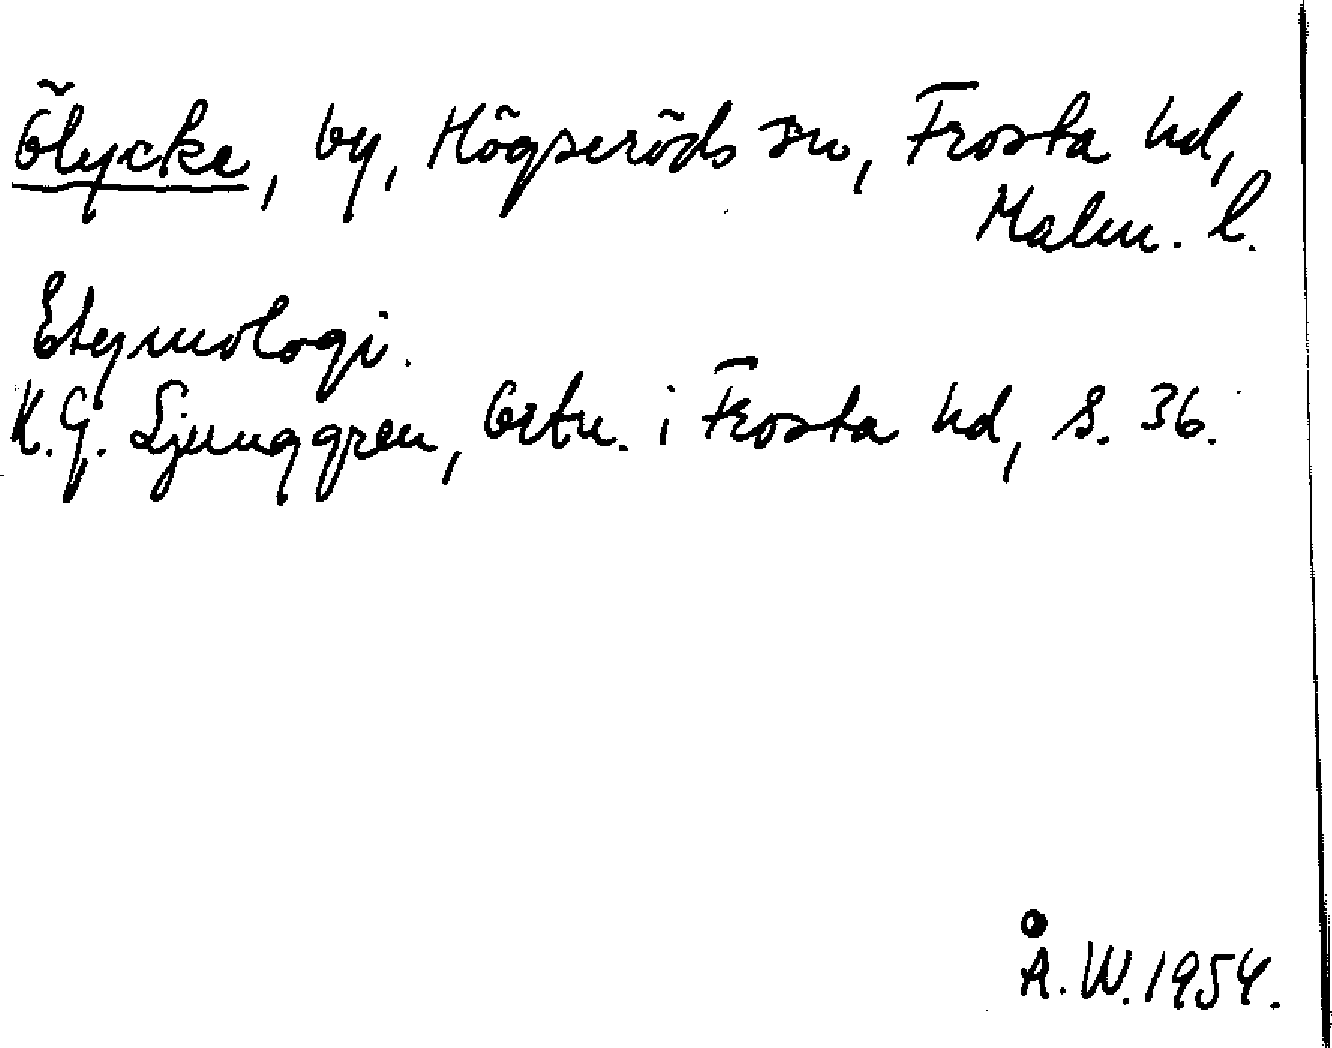 Ölycke, by, Högseröds sn, Frosta hd,
Malm. l.
Etymologi.
K.G. Ljunggren, Ortn. i Frosta hd, s. 36.
Å.W.1954.